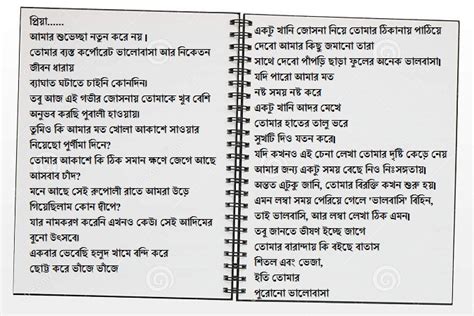 প্রিয়া......
আমার শুভেচ্ছা নতুন করে নয়।
তোমার ব্যস্ত কর্পোরেট ভালোবাসা আর নিকেতন
জীবন ধারায়
ব্যাঘাত ঘটাতে চাইনি কোনদিন।
তবু আজ এই গভীর জোসনায় তোমাকে খুব বেশি
অনুভব করছি পুবালী হাওয়ায়।
তুমিও কি আমার মত খোলা আকাশে সাওয়ার
নিয়েছো পুর্ণীমা দিনে?
তোমার আকাশে কি ঠিক সমান ক্ষণে জেগে আছে
আসবাব চাঁদ?
মনে আছে সেই রুপোলী রাতে আমরা উড়ে
গিয়েছিলাম কোন দ্বীপে?
যার নামকরণ করেনি এখনও কেউ। সেই আদিমের
বুনো উৎসবে।
একবার ভেবেছি হলুদ খামে বন্দি করে
ছোট্ট করে ভাঁজে ভাঁজে
একটু খানি জোসনা নিয়ে তোমার ঠিকানায় পাঠিয়ে
দেবো আমার কিছু জমানো তারা
সাথে দেবো পাঁপড়ি ছাড়া ফুলের অনেক ভালবাসা।
যদি পারো আমার মত
নষ্ট সময় নষ্ট করে
একটু খানি আদর মেখে
তোমার হাতের তালু ভরে
সুখটি দিও যতন করে।
যদি কখনও এই চেনা লেখা তোমার দৃষ্টি কেড়ে নেয়
আমার জন্য একটু সময় বেছে নিও নিঃসঙ্গতায়।
অন্তত এটুকু জানি, তোমার বিরক্তি কখন শুরু হয়।
এমন লম্বা সময় পেরিয়ে গেলে 'ভালবাসি' বিহিন,
তাই ভালবাসি, আর লম্বা লেখা ঠিক এমন।
তবু জানতে ভীষণ ইচ্ছে জাগে
তোমার বারান্দায় কি বইছে বাতাস
শিতল এবং ভেজা,
ইতি তোমার
পুরোনো ভালোবাসা